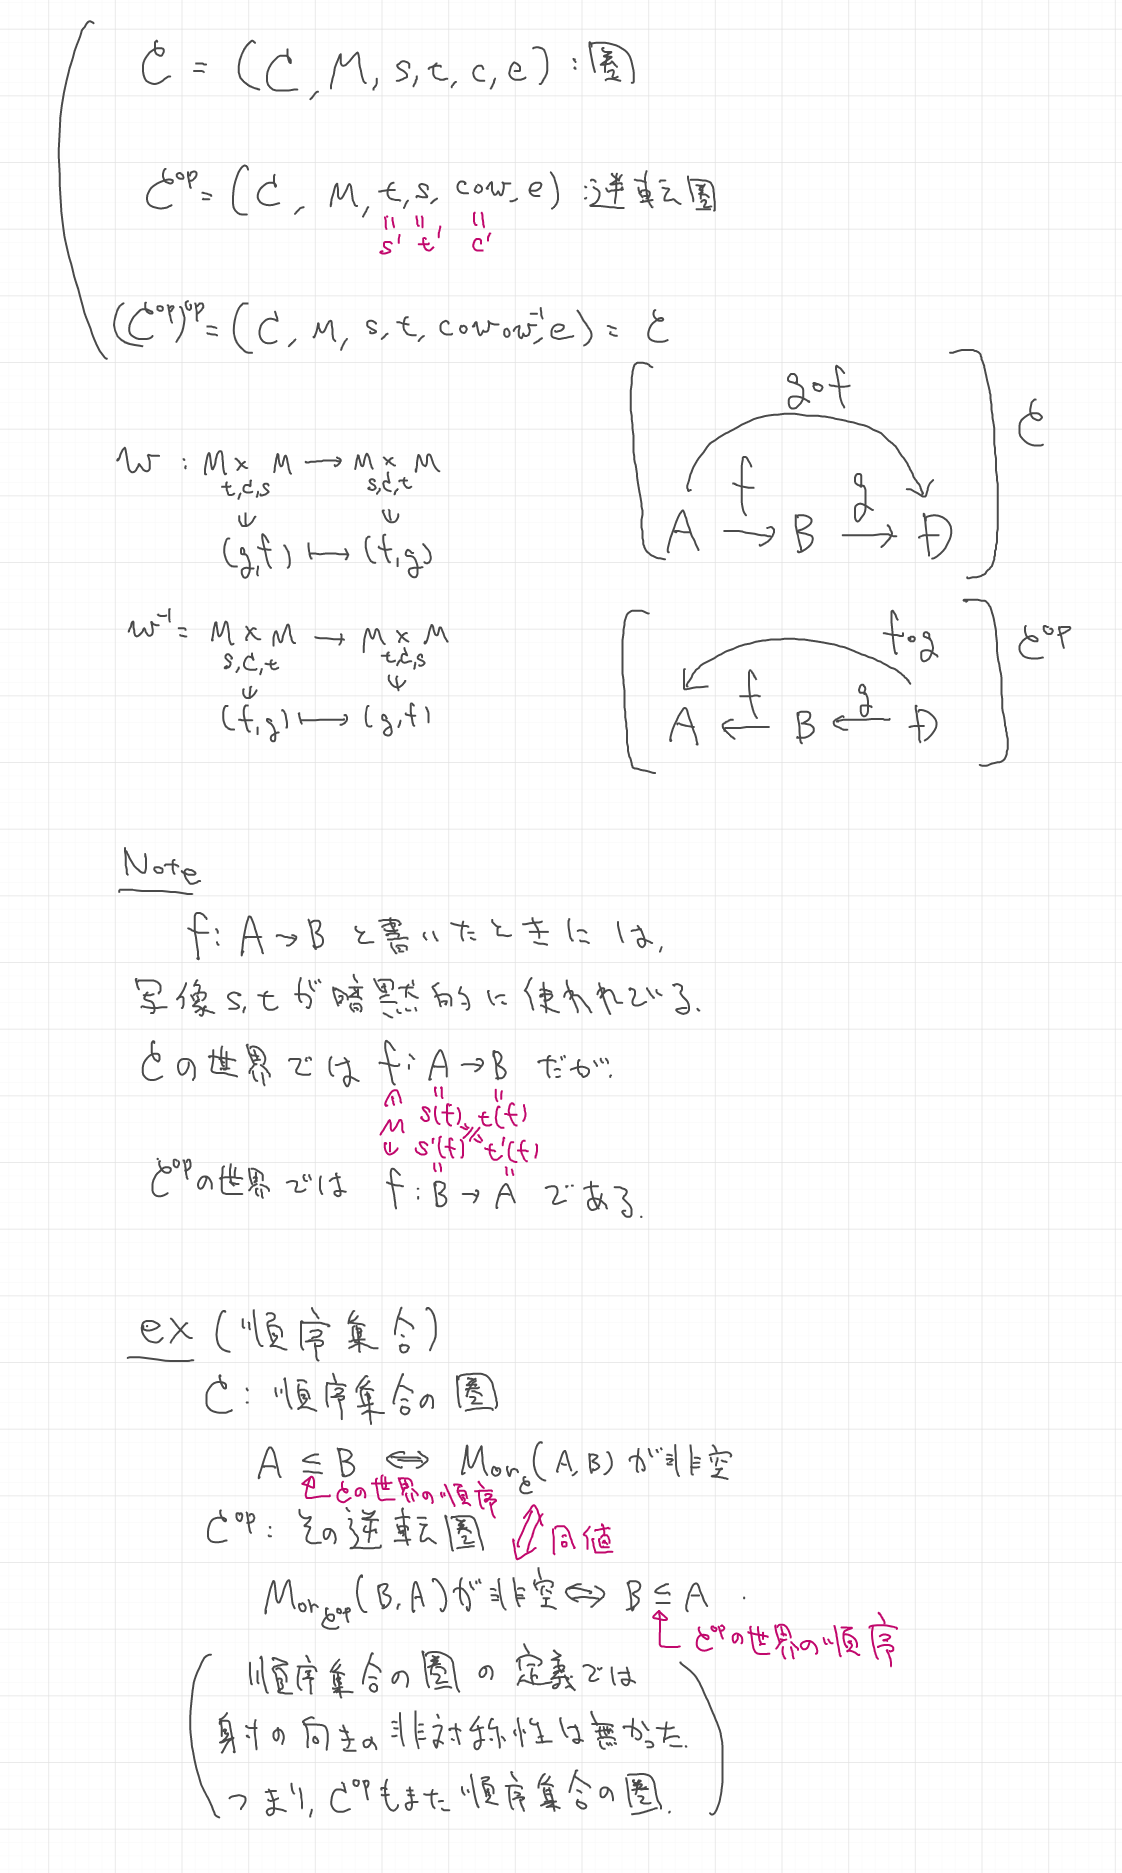 𝒞 = (C, M, s, t, c, e) : 圏
𝒞ᵒᵖ = (C, M, t, s, c∘w, e) : 逆転圏
s' t' c'
(𝒞ᵒᵖ)ᵒᵖ = (C, M, s, t, c∘w∘w⁻¹, e) = 𝒞
w : M × M → M × M
t,C,s s,C,t
(g,f) ↦ (f,g)
w⁻¹ = M × M → M × M
s,C,t t,C,s
(f,g) ↦ (g,f)
g∘f
A →f B →g D
𝒞
f∘g
A ←f B ←g D
𝒞ᵒᵖ
Note
f: A→B と書いたときには,
写像s,tが暗黙的に使われてる.
𝒞の世界では f: A→B だが.
M s(f) t(f)
s'(f) t'(f)
𝒞ᵒᵖの世界では f: B→A である.
ex (順序集合)
𝒞: 順序集合の圏
A ≦ B ⇔ Mor𝒞(A,B)が非空
𝒞の世界の順序
𝒞ᵒᵖ: その逆転圏
同値
Mor𝒞ᵒᵖ(B,A)が非空 ⇔ B ≦ A
𝒞ᵒᵖの世界の順序
(順序集合の圏の定義では
射の向きの非対称性は無かった.
つまり, 𝒞ᵒᵖもまた順序集合の圏.)